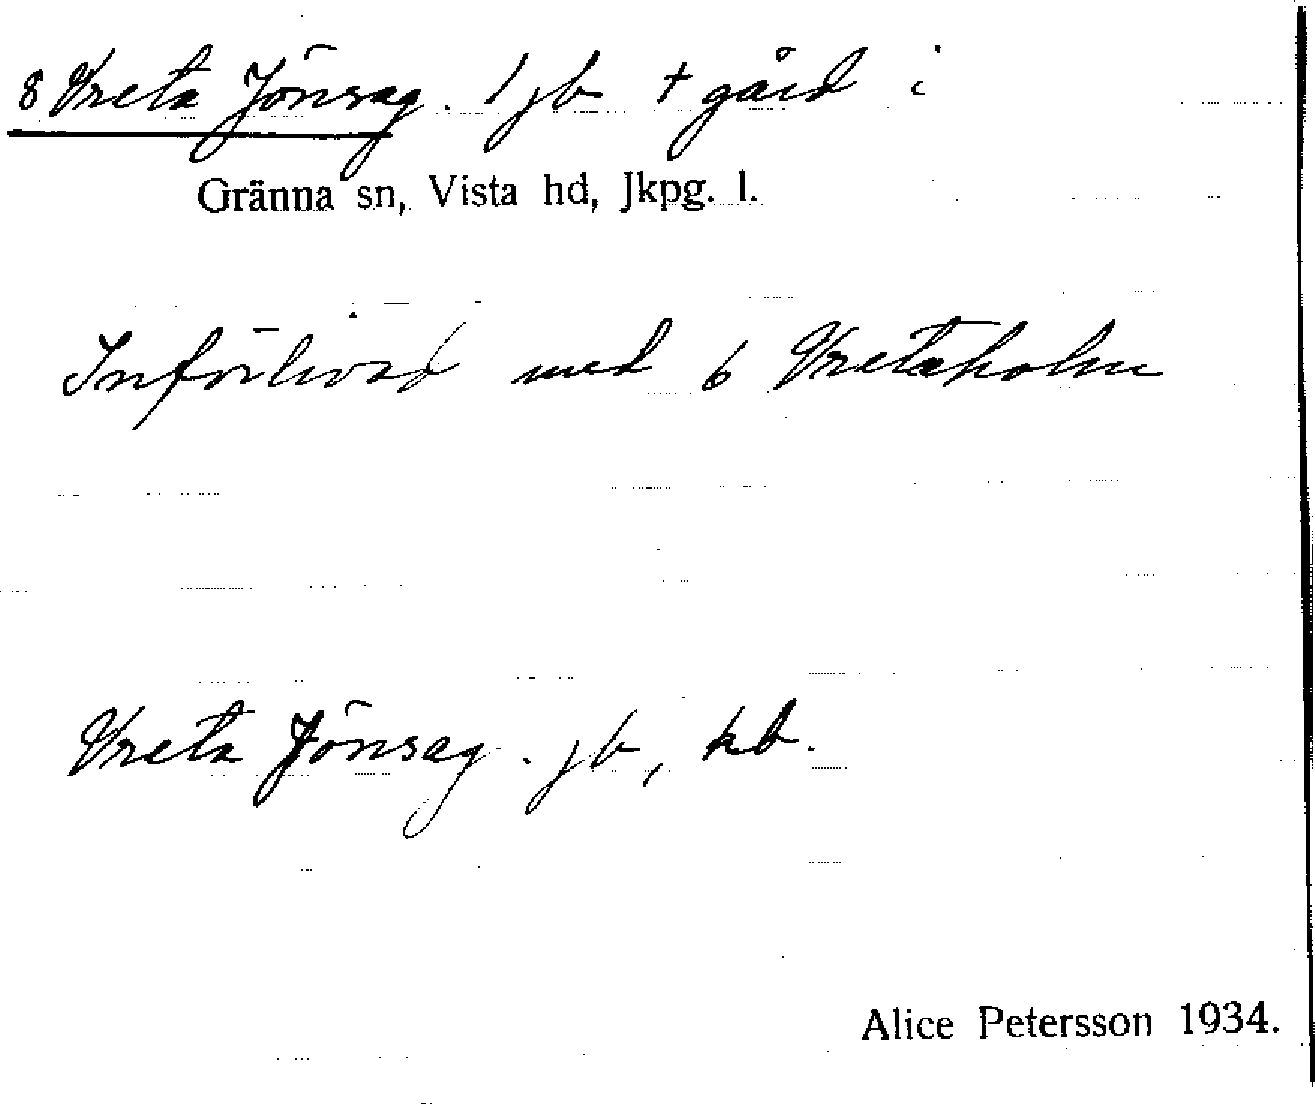 8 Vreta Jönsag. 1 jb † gård i
Gränna sn, Vista hd, Jkpg. l.
Införlivad med 6 Vretaholm
Vreta Jönsag. jb, kb.
Alice Petersson 1934.